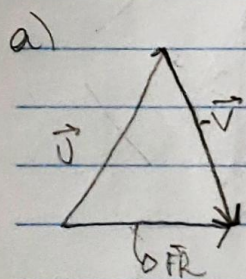 a)
U⃗
-V⃗
FR